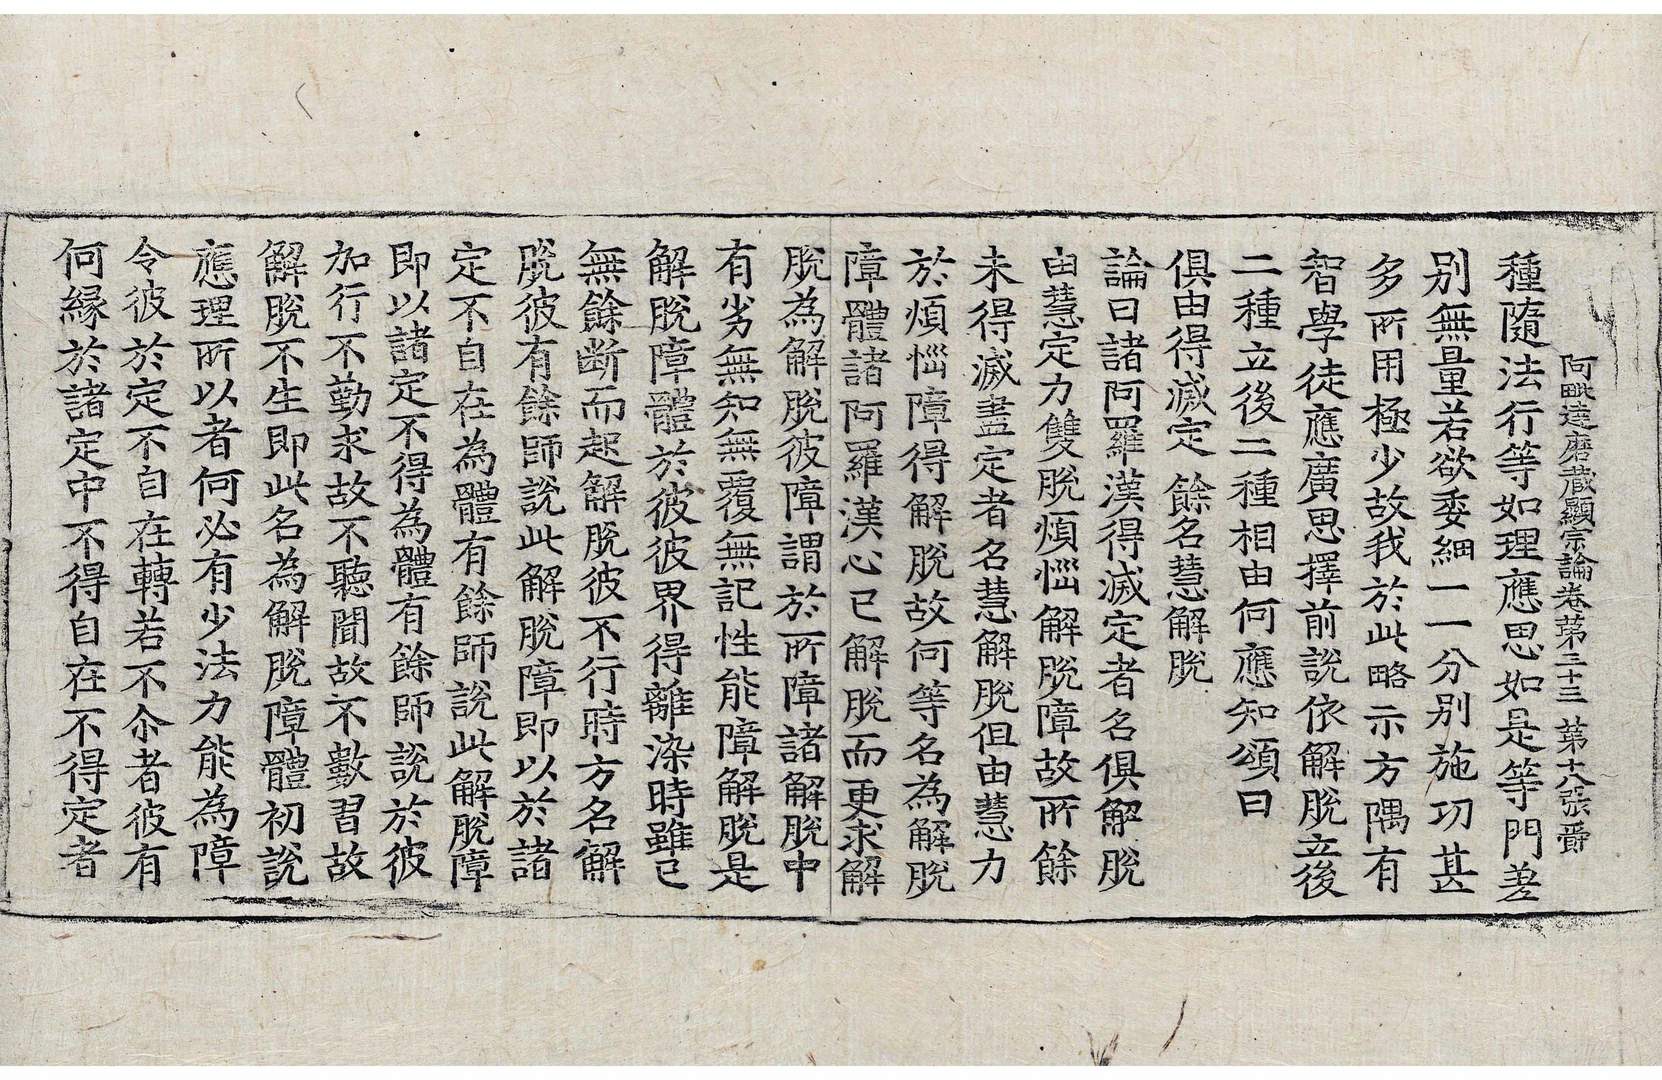 阿毗達磨藏顯宗論卷第三十三　第十八張　爵
種隨法行等如理應思如是等門差
别無量若欲委細一一分别施功甚
多所用極少故我於此略示方隅有
智學徒應廣思擇前說依解脫立後
二種立後二種相由何應知頌曰
俱由得滅定　餘名慧解脫
論曰諸阿羅漢得滅定者名俱解脫
由慧定力雙脫煩惱解脫障故所餘
未得滅盡定者名慧解脫但由慧力
於煩惱障得解脫故何等名為解脫
障體諸阿羅漢心已解脫而更求解
脫為解脫彼障謂於所障諸解脫中
有劣無知無覆無記性能障解脫是
解脫障體於彼彼界得離染時雖已
無餘斷而起解脫彼不行時方名解
脫彼有餘師說此解脫障即以於諸
定不自在為體有餘師說此解脫障
即以諸定不得為體有餘師說於彼
加行不勤求故不聽聞故不數習故
解脫不生即此名為解脫障體初說
應理所以者何必有少法力能為障
令彼於定不自在轉若不尒者彼有
何緣於諸定中不得自在不得定者